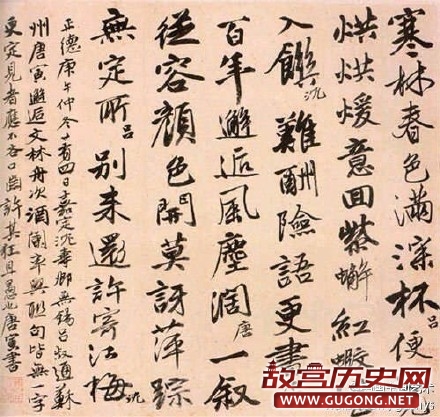 寒林春色滿深杯吕便
烘烘煖意回紫蠏紅
入饌沈難酬險語更
百年邂逅風塵濶唐一叙
從容顏色開莫訝萍踪
無定所吕別來還許寄江梅沈
正德庚午仲冬廿有四日嘉定沈壽卿無錫吕叔通蘇
州唐寅邂逅文林舟次酒闌率興聯句皆無一字
更定見者應不吝口齒許其狂且愚也唐寅書
故宫历史网